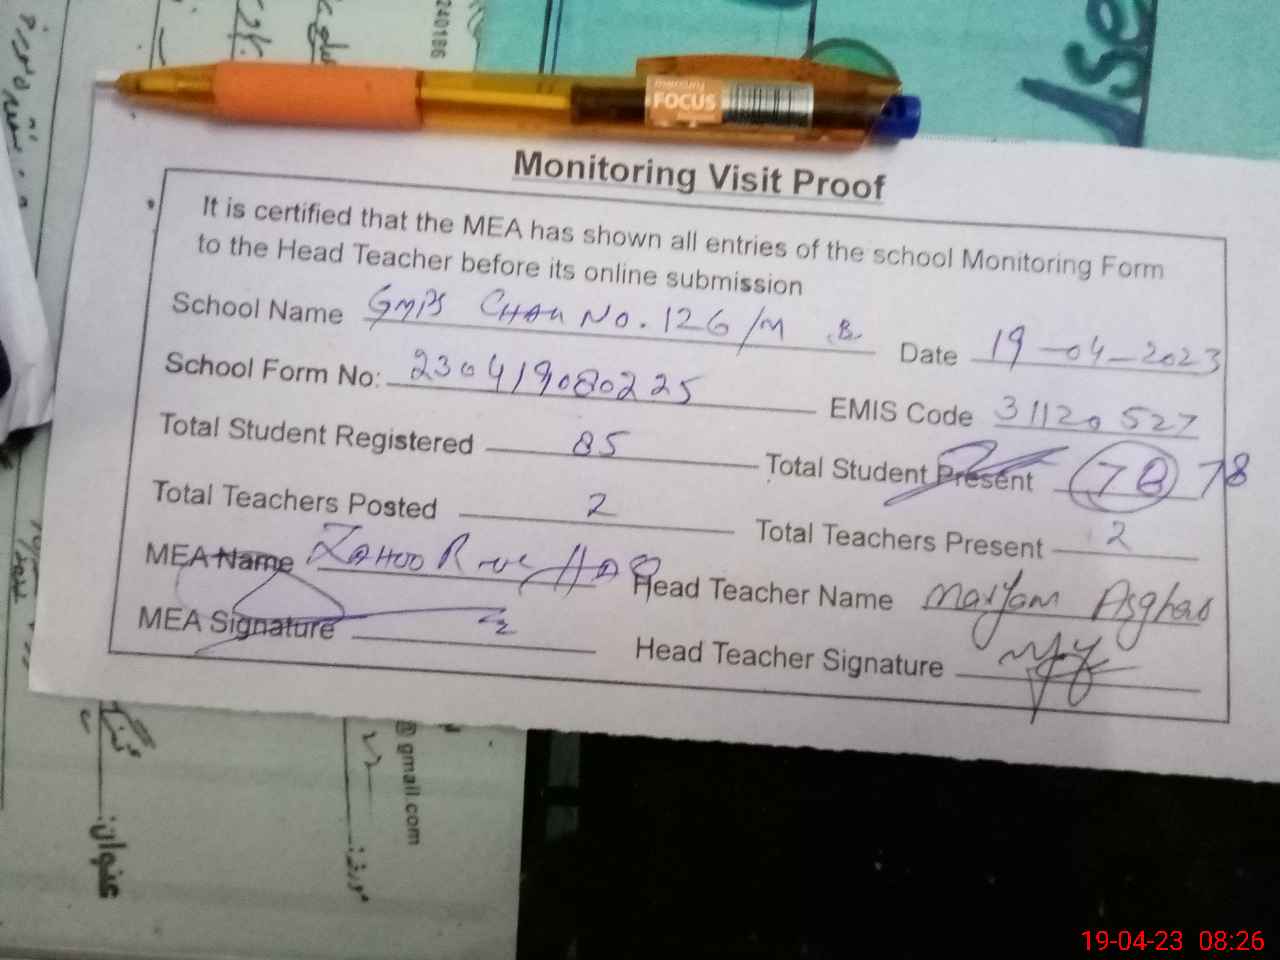 240186
mercury
FOCUS
Monitoring Visit Proof
It is certified that the MEA has shown all entries of the school Monitoring Form
to the Head Teacher before its online submission
School Name GMPS CHAK No. 126/M B. Date 19-04-2023
School Form No: 230419080225 EMIS Code 31120527
Total Student Registered 85 Total Student Present 78 78
Total Teachers Posted 2 Total Teachers Present 2
MEA Name ZAHOOR UL HAQ Head Teacher Name Maryam Asghar
MEA Signature Head Teacher Signature
@gmail.com
عنوان:
مورخہ:
19-04-23 08:26